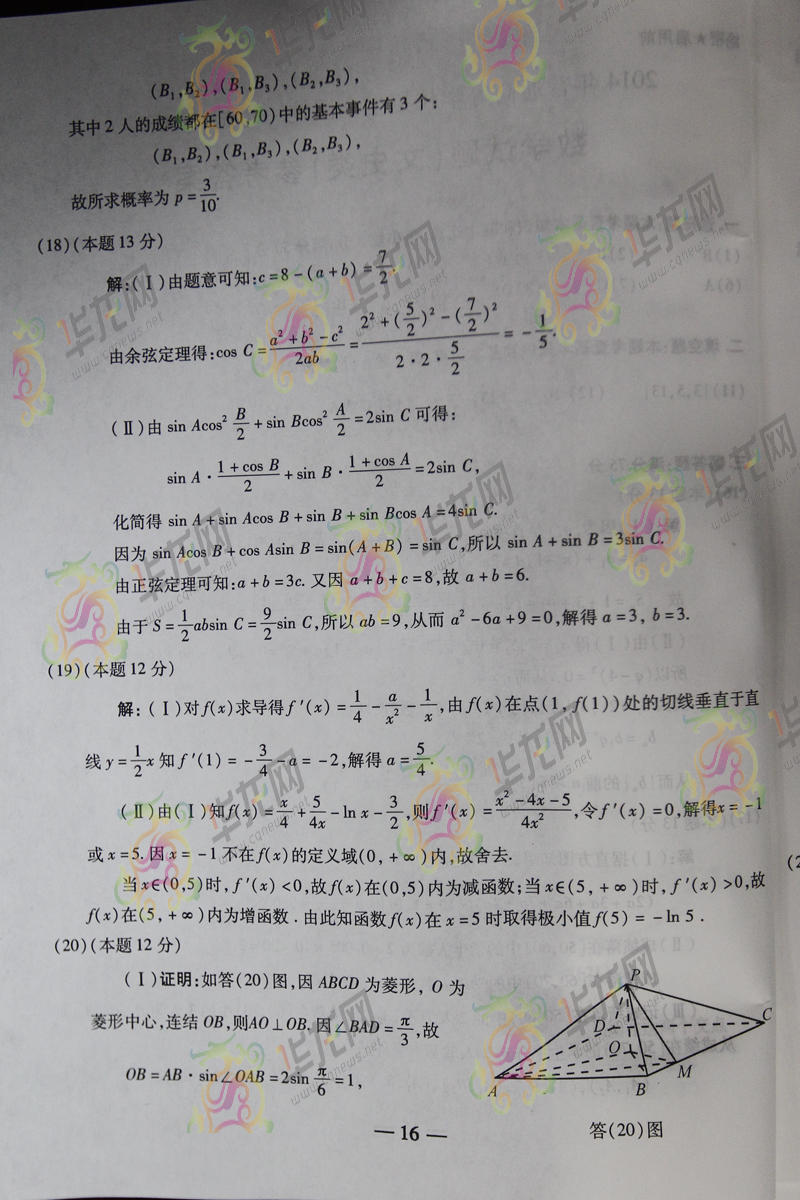 (B₁,B₂),(B₁,B₃),(B₂,B₃),
其中2人的成绩都在[60,70)中的基本事件有3个:
(B₁,B₂),(B₁,B₃),(B₂,B₃),
故所求概率为 p=3/10.
(18)(本题13分)
解:(Ⅰ)由题意可知:c=8-(a+b)=7/2.
由余弦定理得:cos C=(a²+b²-c²)/2ab=(2²+(5/2)²-(7/2)²)/(2·2·5/2)=-1/5.
(Ⅱ)由 sin Acos² B/2+sin Bcos² A/2=2sin C 可得:
sin A·(1+cos B)/2+sin B·(1+cos A)/2=2sin C,
化简得 sin A+sin Acos B+sin B+sin Bcos A=4sin C.
因为 sin Acos B+cos Asin B=sin(A+B)=sin C,所以 sin A+sin B=3sin C.
由正弦定理可知:a+b=3c. 又因 a+b+c=8,故 a+b=6.
由于 S=1/2 absin C=9/2 sin C,所以 ab=9,从而 a²-6a+9=0,解得 a=3, b=3.
(19)(本题12分)
解: (Ⅰ)对 f(x)求导得 f′(x)=1/4-a/x²-1/x,由 f(x)在点(1, f(1))处的切线垂直于直
线 y=1/2 x 知 f′(1)=-3/4-a=-2,解得 a=5/4.
(Ⅱ)由(Ⅰ)知f(x)=x/4+5/4x-ln x-3/2,则f′(x)=(x²-4x-5)/4x²,令 f′(x)=0,解得x=-1
或 x=5. 因 x=-1 不在 f(x)的定义域(0,+∞)内,故舍去.
当 x∈(0,5)时, f′(x)<0,故 f(x)在(0,5)内为减函数;当 x∈(5,+∞)时, f′(x)>0,故
f(x)在(5,+∞)内为增函数. 由此知函数 f(x)在 x=5 时取得极小值 f(5)=-ln 5.
(20)(本题12分)
(Ⅰ)证明:如答(20)图,因 ABCD 为菱形, O 为
菱形中心,连结 OB,则AO⊥OB. 因∠BAD=π/3,故
OB=AB·sin∠OAB=2sin π/6=1,
P
D
C
O
M
A
B
答(20)图
—16—
华龙网
www.cqnews.net